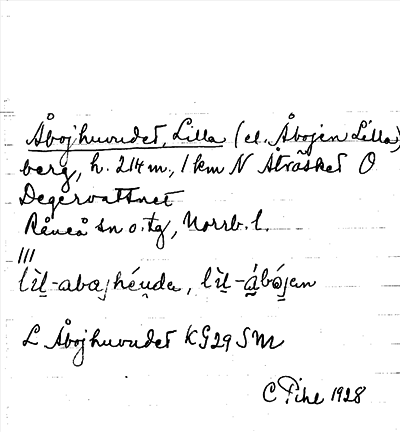 Åbojhuvudet, Lilla (el. Åbojen Lilla)
berg, h. 214 m., 1 km N Åträsket O
Degervattnet
Råneå sn o. tg, Norrb. l.
///
lìl-abɑjhéuda, lìl-ábójan
L Åbojhuvudet KG29SM
C Pihl 1928